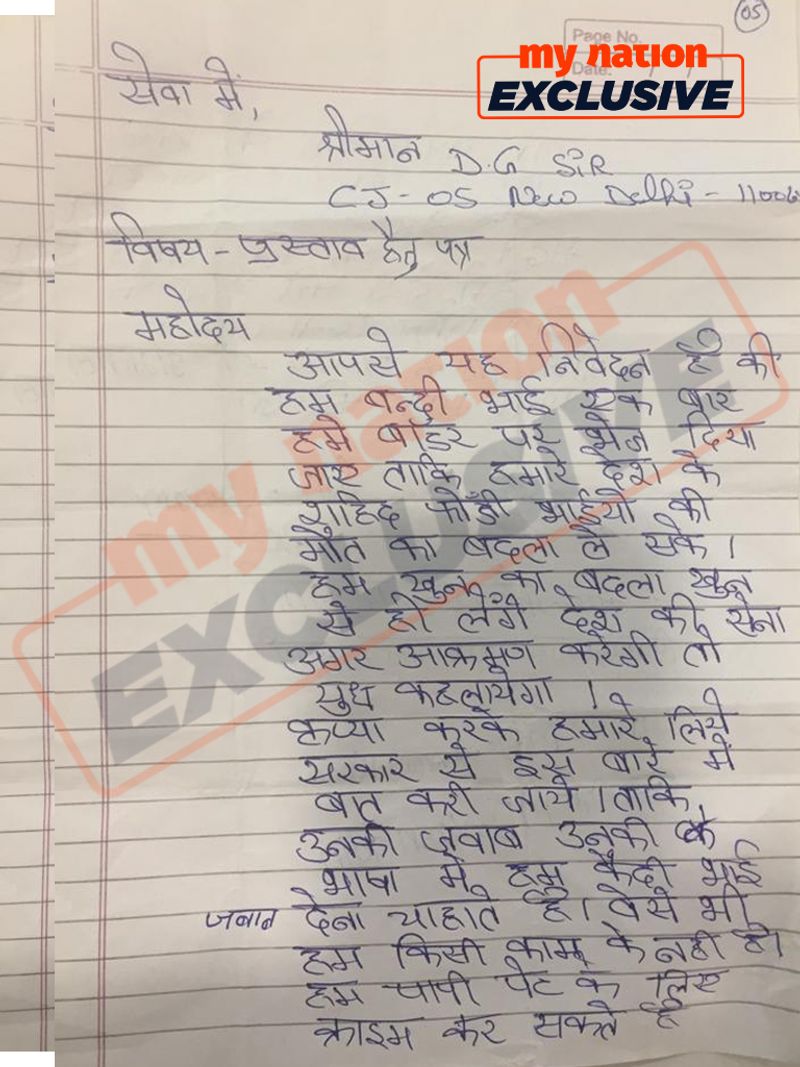 05
Page No.
Date:
my nation
EXCLUSIVE
सेवा में,
श्रीमान D.G Sir
CJ-05 New Delhi - 11006
विषय - प्रस्ताव हेतु पत्र
महोदय
आपसे यह निवेदन है की
हम बन्दी भाई एक बार
हमे बॉडर पर भेज दिया
जाए ताकि हमारे देश के
शहिद फौजी भाईयो की
मौत का बदला ले सके।
हम खुन का बदला खुन
से ही लेंगे देश की सेना
अगर आक्रमण करेगी तो
युध कहलायेगा।
कृप्या करके हमारे लिये
सरकार से इस बारे में
बात करी जाये। ताकि
उनको जवाब उनकी
भाषा में हम कैदी भाई
जबान देना चाहाते है। वेसे भी
हम किसी काम के नही है।
हम पापी पेट के लिए
क्राइम कर सकते है
my nation
EXCLUSIVE